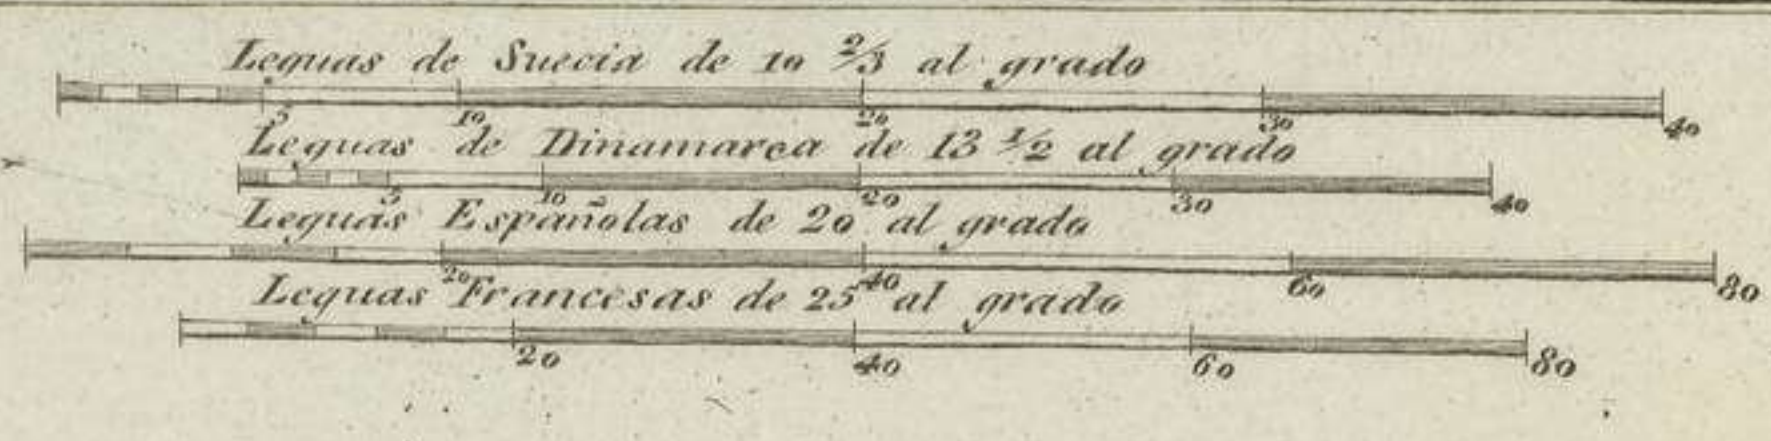 Leguas de Suecia de 10 2/3 al grado
5 10 20 30 40
Leguas de Dinamarca de 13 1/2 al grado
5 10 20 30 40
Leguas Españolas de 20 al grado
20 40 60 80
Leguas Francesas de 25 al grado
20 40 60 80